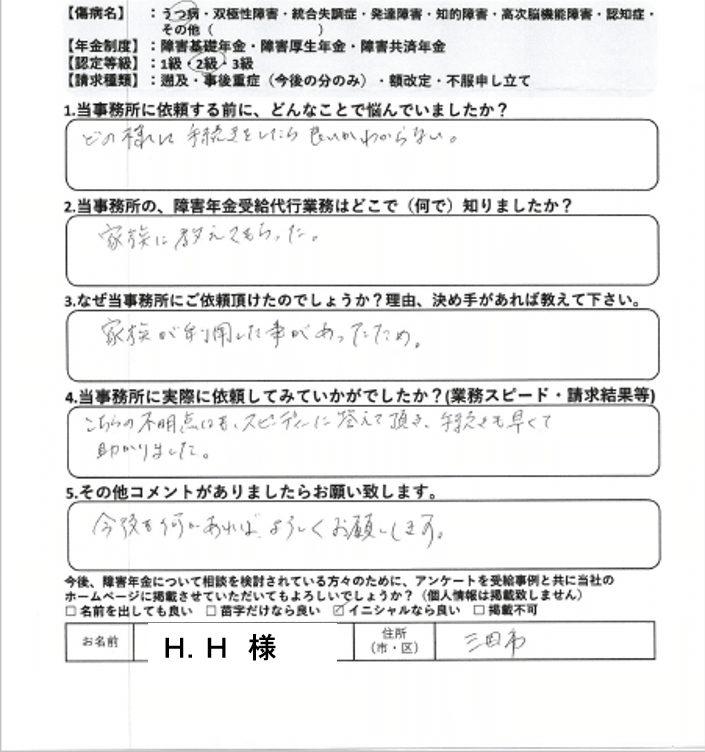 【傷病名】 ：うつ病・双極性障害・統合失調症・発達障害・知的障害・高次脳機能障害・認知症・
その他（　　　　　　　　）
【年金制度】 ：障害基礎年金・障害厚生年金・障害共済年金
【認定等級】 ：1級・2級・3級
【請求種類】 ：遡及・事後重症（今後の分のみ）・額改定・不服申し立て
1.当事務所に依頼する前に、どんなことで悩んでいましたか？
どの様に手続きをしたら良いかわからない。
2.当事務所の、障害年金受給代行業務はどこで（何で）知りましたか？
家族に教えてもらった。
3.なぜ当事務所にご依頼頂けたのでしょうか？理由、決め手があれば教えて下さい。
家族が利用した事があったため。
4.当事務所に実際に依頼してみていかがでしたか？(業務スピード・請求結果等)
こちらの不明点にも、スピーディーに答えて頂き、手続きも早くて
助かりました。
5.その他コメントがありましたらお願い致します。
今後も何かあれば、よろしくお願いします。
今後、障害年金について相談を検討されている方々のために、アンケートを受給事例と共に当社の
ホームページに掲載させていただいてもよろしいでしょうか？（個人情報は掲載致しません）
□ 名前を出しても良い　□ 苗字だけなら良い　☑ イニシャルなら良い　□ 掲載不可
お名前　H.H 様　住所（市・区）　三田市